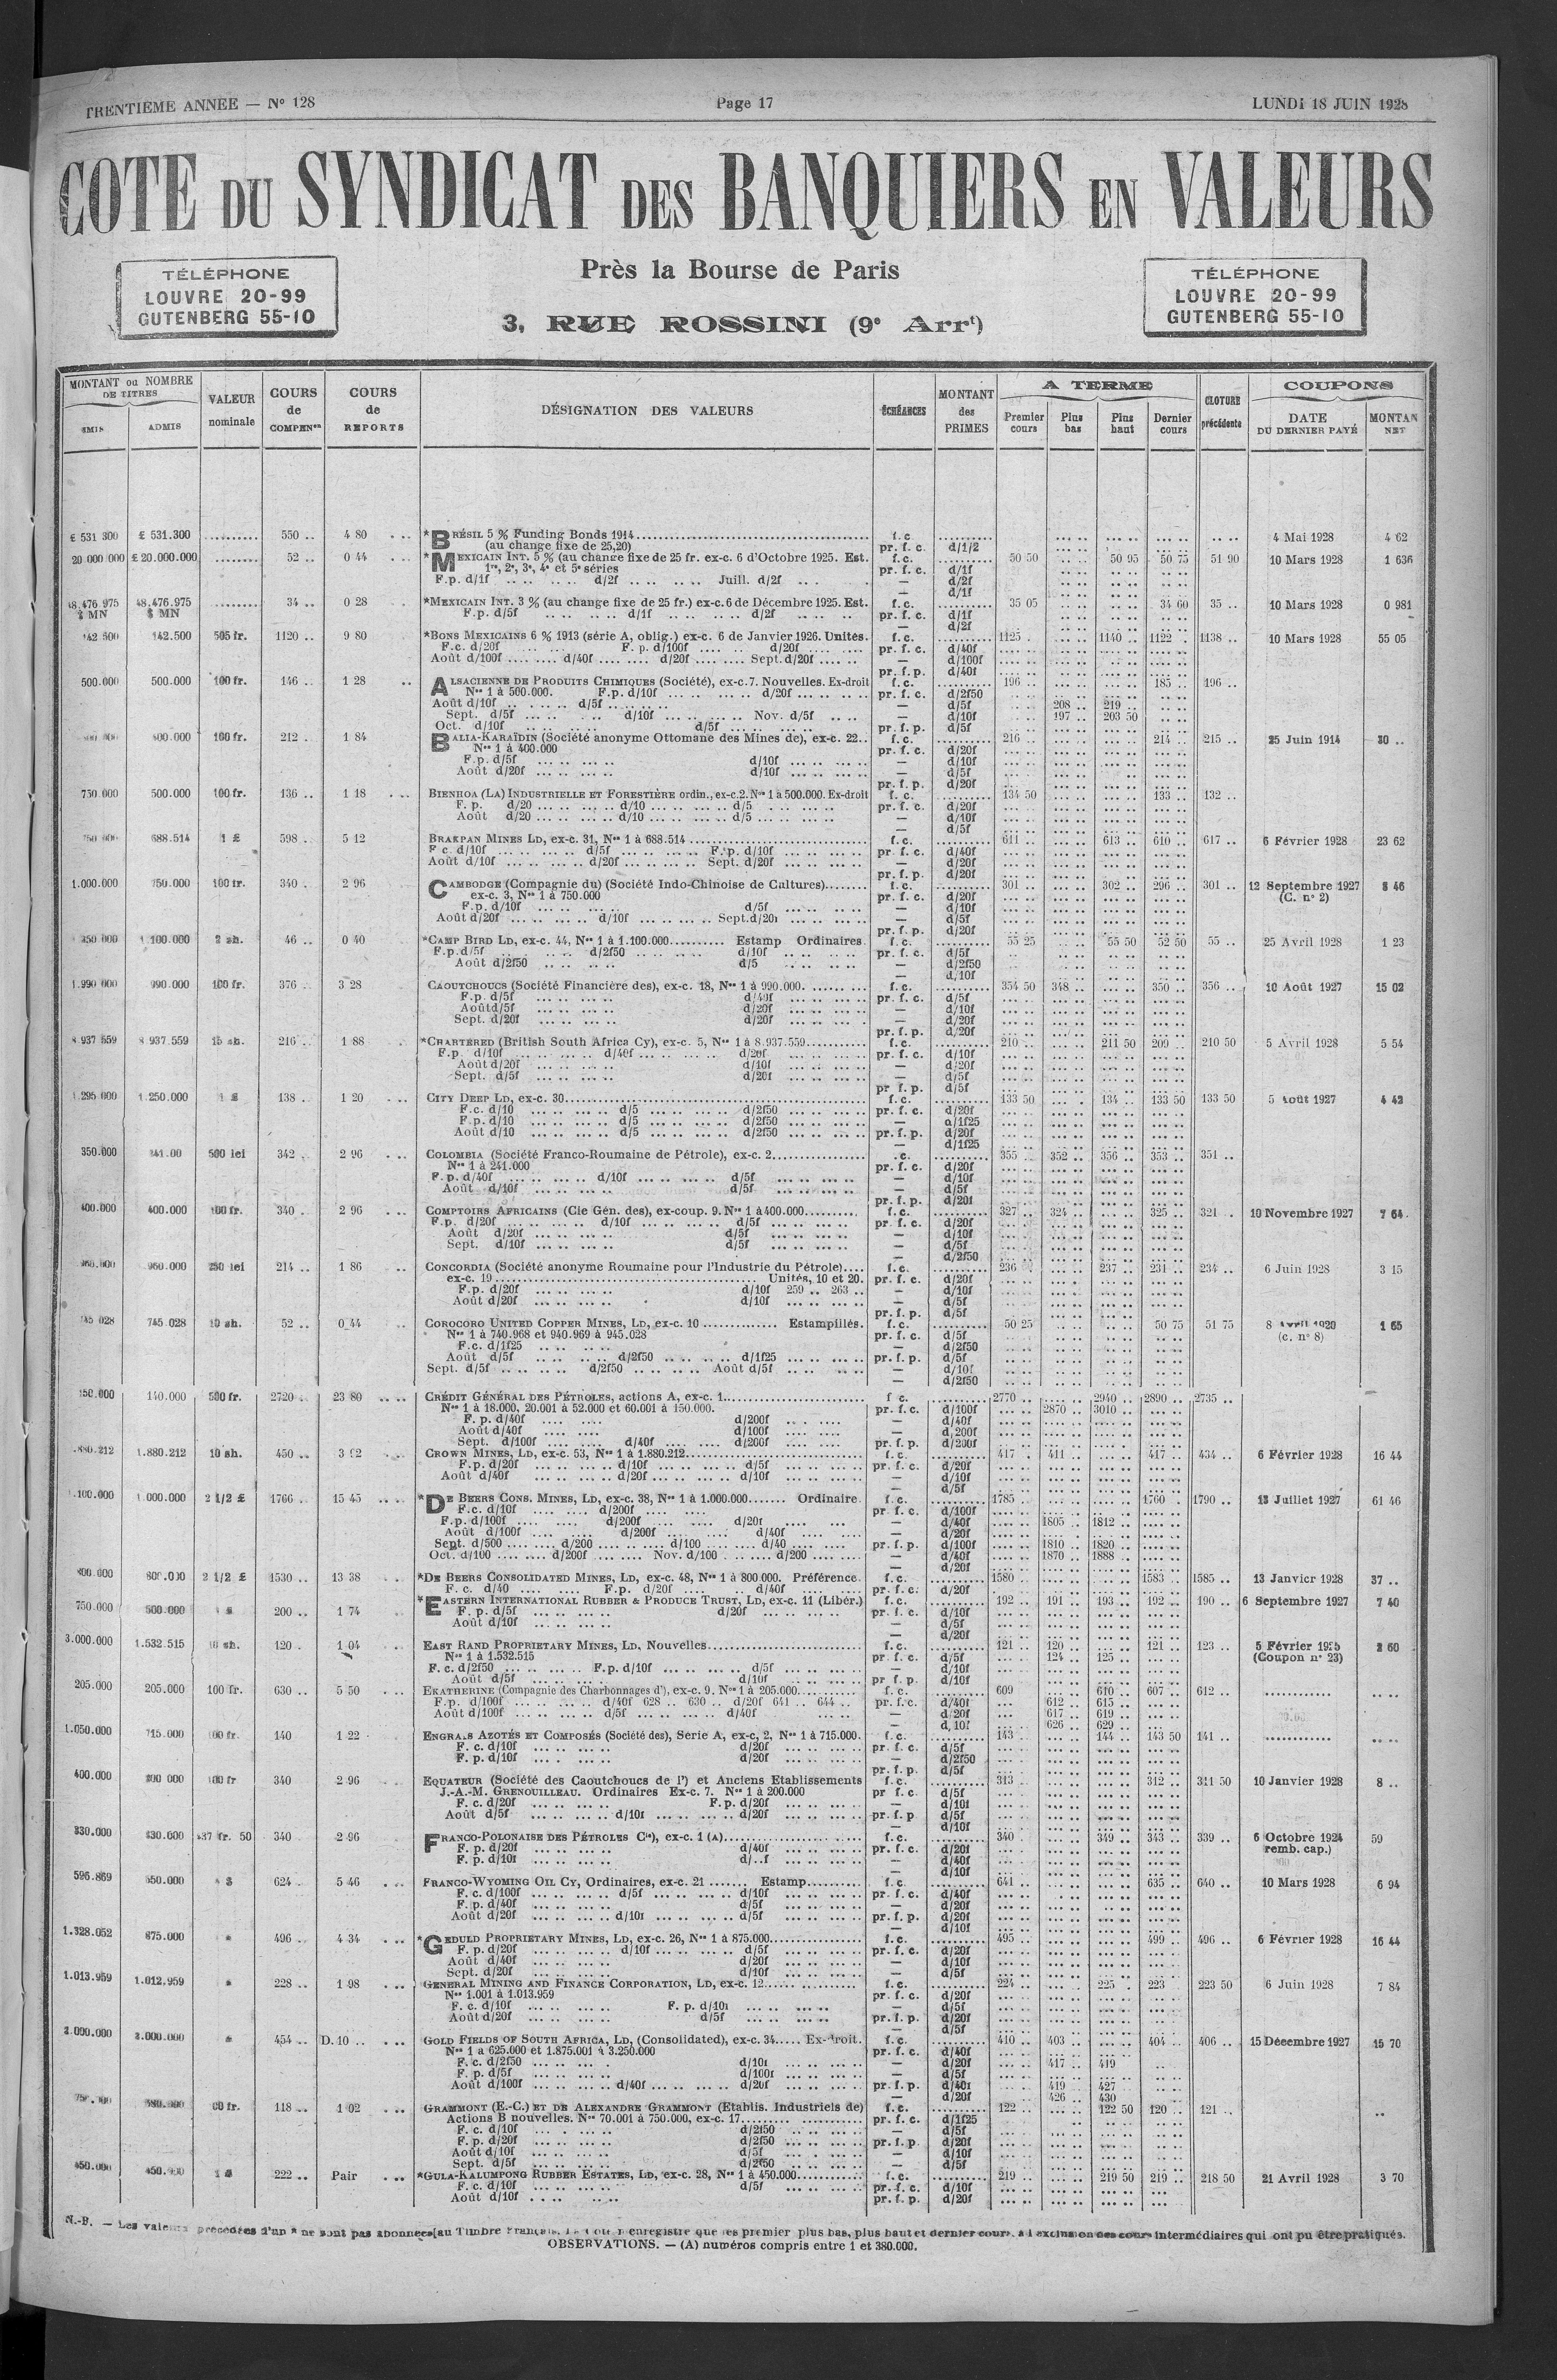 TRENTIÈME ANNÉE — N° 128 Page 17 LUNDI 18 JUIN 1928
COTE DU SYNDICAT DES BANQUIERS EN VALEURS
TÉLÉPHONE
LOUVRE 20-99
GUTENBERG 55-10
Près la Bourse de Paris
3, RUE ROSSINI (9e Arrt)
TÉLÉPHONE
LOUVRE 20-99
GUTENBERG 55-10
MONTANT ou NOMBRE DE TITRES
ÉMIS ADMIS
VALEUR nominale
COURS de COMPENon
COURS de REPORTS
DÉSIGNATION DES VALEURS
ÉCHÉANCES
MONTANT des PRIMES
A TERME
Premier cours Plus bas Plus haut Dernier cours
CLOTURE précédente
COUPONS
DATE DU DERNIER PAYÉ MONTAN NET
£ 531 300 £ 531.300 ......... 550 .. 4 80 *BRÉSIL 5 % Funding Bonds 1914 f.c 4 Mai 1928 4 62
(au change fixe de 25,20) pr. f. c. d/1/2
20 000 000 £ 20.000.000 ......... 52 .. 0 44 *MEXICAIN INT. 5 % (au change fixe de 25 fr. ex-c. 6 d'Octobre 1925. Est. f.c. 50 50 50 95 50 75 51 90 10 Mars 1928 1 636
1re, 2e, 3e, 4e et 5e séries pr. f. c. d/1f
F.p. d/1f d/2f Juill. d/2f — d/2f
— d/1f
48.476.975 $ MN 48.476.975 $ MN ......... 34 .. 0 28 *MEXICAIN INT. 3 % (au change fixe de 25 fr.) ex-c. 6 de Décembre 1925. Est. f.c. 35 05 34 60 35 .. 10 Mars 1928 0 981
F.p. d/5f d/1f d/2f pr. f. c. d/1f
— d/2f
142.500 142.500 505 fr. 1120 .. 9 80 *BONS MEXICAINS 6 % 1913 (série A, oblig.) ex-c. 6 de Janvier 1926. Unités. f.c. 1125 . 1140 .. 1122 .. 1138 .. 10 Mars 1928 55 05
F.c. d/20f F. p. d/100f d/20f pr. f. c. d/40f
Août d/100f d/40f d/20f Sept. d/20f — d/100f
pr. f. p. d/40f
500.000 500.000 100 fr. 146 .. 1 28 ALSACIENNE DE PRODUITS CHIMIQUES (Société), ex-c. 7. Nouvelles. Ex-droit f.c. 196 .. 185 .. 196 ..
Nos 1 à 500.000. F.p. d/10f d/20f pr. f. c. d/2f50
Août d/10f d/5f — d/5f 208 .. 219 ..
Sept. d/5f d/10f Nov. d/5f — d/10f 197 .. 203 50
Oct. d/10f d/5f pr. f. p. d/5f
400.000 100 fr. 212 . 1 84 BALIA-KARAÏDIN (Société anonyme Ottomane des Mines de), ex-c. 22.. f.c. 216 .. 214 .. 215 .. 25 Juin 1914 30 ..
Nos 1 à 400.000 pr. f. c. d/20f
F.p. d/5f d/10f — d/10f
Août d/20f d/10f — d/5f
pr. f. p. d/20f
750.000 500.000 100 fr. 136 .. 1 18 BIENHOA (LA) INDUSTRIELLE ET FORESTIÈRE ordin., ex-c. 2. Nos 1 à 500.000. Ex-droit f. c. 134 50 133 .. 132 ..
F. p. d/20 d/10 d/5 pr. f. c. d/20f
Août d/20 d/10 d/5 — d/10f
— d/5f
688.514 1 £ 598 .. 5 12 BRAKPAN MINES LD, ex-c. 31, Nos 1 à 688.514 f.c. 611 .. 613 .. 610 .. 617 .. 6 Février 1928 23 62
F c. d/10f d/5f F.p. d/10f pr. f. c. d/40f
Août d/10f d/20f Sept. d/20f — d/20f
pr. f. p. d/20f
1.000.000 750.000 100 fr. 340 .. 2 96 CAMBODGE (Compagnie du) (Société Indo-Chinoise de Cultures) f.c. 301 .. 302 .. 296 .. 301 .. 12 Septembre 1927 8 46
ex-c. 3, Nos 1 à 750.000 pr. f. c. d/20f (C. n° 2)
F.p. d/10f d/5f — d/10f
Août d/20f d/10f Sept. d/20f — d/5f
pr. f. p. d/20f
1.100.000 2 sh. 46 .. 0 40 *CAMP BIRD LD, ex-c. 44, Nos 1 à 1.100.000 Estamp Ordinaires. f.c. 55 25 55 50 52 50 55 .. 25 Avril 1928 1 23
F.p. d/5f d/2f50 d/10f pr. f. c. d/5f
Août d/2f50 d/5 — d/2f50
— d/10f
1.990 000 990.000 100 fr. 376 .. 3 28 CAOUTCHOUCS (Société Financière des), ex-c. 18, Nos 1 à 990.000. f.c. 354 50 348 .. 350 .. 356 .. 10 Août 1927 15 02
F.p. d/5f d/40f pr. f. c. d/5f
Août d/5f d/20f — d/10f
Sept. d/20f d/20f — d/20f
pr. f. p. d/20f
8 937 559 8 937.559 15 sh. 216 .. 1 88 *CHARTERED (British South Africa Cy), ex-c. 5, Nos 1 à 8.937.559 f.c. 210 .. 211 50 209 .. 210 50 5 Avril 1928 5 54
F.p. d/10f d/40f d/20f pr. f. c. d/10f
Août d/20f d/10f — d/20f
Sept. d/5f d/20f — d/5f
pr f. p. d/5f
1.295 000 1.250.000 1 £ 138 .. 1 20 CITY DEEP LD, ex-c. 30 f.c. 133 50 134 .. 133 50 133 50 5 Août 1927 4 42
F.c. d/10 d/5 d/2f50 pr. f. c. d/20f
F.p. d/10 d/5 d/2f50 — d/1f25
Août d/10 d/5 d/2f50 pr. f. p. d/20f
— d/1f25
350.000 500 lei 342 . 2 96 COLOMBIA (Société Franco-Roumaine de Pétrole), ex-c. 2 .c. 355 .. 352 .. 356 .. 353 .. 351 ..
Nos 1 à 241.000 pr. f. c. d/20f
F. p. d/40f d/10f d/5f — d/10f
Août d/10f d/5f — d/5f
pr. f. p. d/20f
400.000 400.000 100 fr. 340 . 2 96 COMPTOIRS AFRICAINS (Cie Gén. des), ex-coup. 9. Nos 1 à 400.000 f.c. 327 .. 324 .. 325 .. 321 .. 10 Novembre 1927 7 64
F.p. d/20f d/10f d/5f pr. f. c. d/20f
Août d/20f d/5f — d/10f
Sept. d/10f d/5f — d/5f
— d/2f50
960.000 250 lei 214 .. 1 86 CONCORDIA (Société anonyme Roumaine pour l'Industrie du Pétrole).... f.c. 236 237 .. 231 .. 234 .. 6 Juin 1928 3 15
ex-c. 19 Unités, 10 et 20. pr. f. c. d/20f
F.p. d/20f d/10f 259 .. 263 .. — d/10f
Août d/20f d/10f — d/5f
pr. f. p. d/5f
745.028 10 sh. 52 .. 0 44 COROCORO UNITED COPPER MINES, LD, ex-c. 10 Estampillés. f.c. 50 25 50 75 51 75 8 Avril 1920 1 65
Nos 1 à 740.968 et 940.969 à 945.028 pr. f. c. d/5f (c. n° 8)
F.c. d/1f25 — d/2f50
Août d/5f d/2f50 d/1f25 pr. f. p. d/5f
Sept. d/5f d/2f50 Août d/5f — d/10f
— d/2f50
150.000 140.000 500 fr. 2720 .. 23 80 CRÉDIT GÉNÉRAL DES PÉTROLES, actions A, ex-c. 1 f c. 2770 .. 2940 .. 2890 .. 2735 ..
Nos 1 à 18.000, 20.001 à 52.000 et 60.001 à 150.000. pr. f. c. d/100f 2870 .. 3010 ..
F. p. d/40f d/200f — d/40f
Août d/40f d/100f — d/200f
Sept. d/100f d/40f d/200f pr. f. p. d/200f
1.880.212 1.880.212 10 sh. 450 .. 3 92 CROWN MINES, LD, ex-c. 53, Nos 1 à 1.880.212 f.c. 417 . 411 .. 417 .. 434 .. 6 Février 1928 16 44
F.p. d/20f d/10f d/5f pr. f. c. d/20f
Août d/40f d/20f d/10f — d/10f
— d/5f
1.100.000 1.000.000 2 1/2 £ 1766 .. 15 45 *DE BEERS CONS. MINES, LD, ex-c. 38, Nos 1 à 1.000.000 Ordinaire. f.c. 1785 .. 1760 .. 1790 .. 13 Juillet 1927 61 46
F.c. d/10f d/200f pr f. c. d/100f
F.p. d/100f d/200f d/20f — d/40f 1805 .. 1812 ..
Août d/100f d/200f d/40f — d/20f
Sept. d/500 d/200 d/100 d/40 pr. f. p. d/100f 1810 .. 1820 ..
Oct. d/100 d/200f Nov. d/100 d/200 — d/40f 1870 .. 1888 ..
— d/20f
800.000 800.000 2 1/2 £ 1530 .. 13 38 *DE BEERS CONSOLIDATED MINES, LD, ex-c. 48, Nos 1 à 800.000. Préférence. f.c. 1580 1583 .. 1585 .. 13 Janvier 1928 37 ..
F. c. d/40 F.p. d/20f d/40f pr. f. c. d/20f
750.000 500.000 200 .. 1 74 *EASTERN INTERNATIONAL RUBBER & PRODUCE TRUST, LD, ex-c. 11 (Libér.) f.c. 192 .. 191 .. 193 .. 192 .. 190 .. 6 Septembre 1927 7 40
F. p. d/5f d/20f pr. f. c. d/10f
Août d/10f — d/5f
— d/20f
3.000.000 1.532.515 10 sh. 120 . 1 04 EAST RAND PROPRIETARY MINES, LD, Nouvelles f.c. 121 .. 120 .. 121 .. 123 .. 5 Février 1925 2 60
Nos 1 à 1.532.515 pr f. c. d/5f 124 .. 125 .. (Coupon n° 23)
F. c. d/2f50 F.p. d/10f d/5f — d/10f
Août d/5f d/10f pr f. p. d/10f
205.000 205.000 100 fr. 630 .. 5 50 EKATHERINE (Compagnie des Charbonnages d'), ex-c. 9, Nos 1 à 205.000 f.c. 609 610 .. 607 .. 612 ..
F.p. d/100f d/40f 628 .. 630 .. d/20f 641 .. 644 .. pr. f. c. d/40f 612 .. 615 ..
Août d/100f d/5f d/40f — d/20f 617 .. 619 ..
— d/10f 626 .. 629 ..
1.050.000 715.000 100 fr. 140 1 22 ENGRAIS AZOTÉS ET COMPOSÉS (Société des), Série A, ex-c, 2, Nos 1 à 715.000. f.c. 143 .. 144 .. 143 50 141 ..
F. c. d/10f d/20f pr. f. c. d/5f
F. p. d/10f d/20f — d/2f50
pr. f. p. d/5f
400.000 200 000 100 fr 340 2 96 EQUATEUR (Société des Caoutchoucs de l') et Anciens Etablissements f.c. 313 .. 312 .. 311 50 10 Janvier 1928 8 ..
J.-A.-M. GRENOUILLEAU. Ordinaires Ex-c. 7. Nos 1 à 200.000 pr f. c. d/5f
F. c. d/20f F. p. d/20f — d/10f
Août d/5f d/10f d/20f pr. f. p d/5f
— d/10f
330.000 330.000 437 fr. 50 340 2 96 FRANCO-POLONAISE DES PÉTROLES Cie), ex-c. 1 (A) f.c. 340 . 349 .. 343 .. 339 .. 6 Octobre 1924 59
F. p. d/20f d/40f pr. f. c. d/20f remb. cap.)
F. p. d/10f d/..f — d/40f
— d/10f
596.869 550.000 624 .. 5 46 FRANCO-WYOMING OIL CY, Ordinaires, ex-c. 21 Estamp f.c 641 .. 635 .. 640 .. 10 Mars 1928 6 94
F. c. d/100f d/5f d/10f pr. f. c. d/40f
F. p. d/40f d/5f — d/20f
Août d/20f d/10f d/5f pr. f. p. d/20f
— d/10f
1.328.052 875.000 496 .. 4 34 *GEDULD PROPRIETARY MINES, LD, ex-c. 26, Nos 1 à 875.000 f.c. 495 .. 499 .. 496 .. 6 Février 1928 16 44
F. p. d/20f d/10f d/5f pr. f. c. d/20f
Août d/40f d/20f — d/10f
Sept. d/20f d/10f — d/5f
1.013.959 1.012.959 228 .. 1 98 GENERAL MINING AND FINANCE CORPORATION, LD, ex-c. 12 f.c. 224 .. 225 . 223 .. 223 50 6 Juin 1928 7 84
Nos 1.001 à 1.013.959 pr. f. c. d/20f
F. c. d/10f F. p. d/10f — d/5f
Août d/20f d/5f pr. f. p. d/20f
— d/5f
2.000.000 2.000.000 454 .. D. 10 .. GOLD FIELDS OF SOUTH AFRICA, LD, (Consolidated), ex-c. 34 Ex-droit. f.c. 410 .. 403 .. 404 .. 406 .. 15 Décembre 1927 15 70
Nos 1 a 625.000 et 1.875.001 à 3.250.000 pr. f. c. d/40f
F. c. d/2f50 d/10f — d/20f 417 .. 419
F. p. d/5f d/100f — d/5f
Août d/100f d/40f d/20f pr. f. p. d/40f 419 .. 427
— d/20f 426 .. 430
118 .. 1 02 GRAMMONT (E.-C.) ET DE ALEXANDRE GRAMMONT (Etablis. Industriels de) f.c. 122 .. 122 50 120 .. 121 ..
Actions B nouvelles. Nos 70.001 à 750.000, ex-c. 17 pr. f. c. d/1f25
F. c. d/10f d/2f50 — d/5f
F. p. d/20f d/2f50 pr. f. p. d/20f
Août d/10f d/5f — d/10f
Sept. d/5f d/2f50 — d/5f
450.000 222 .. Pair *GULA-KALUMPONG RUBBER ESTATES, LD, ex-c. 28, Nos 1 à 450.000 f.c. 219 .. 219 50 219 .. 218 50 21 Avril 1928 3 70
F. c. d/10f d/5f pr. f. c. d/10f
Août d/10f pr. f. p. d/20f
N.-B. — Les valeurs précédées d'un * ne sont pas abonnées au Timbre Français. que les premier plus bas, plus haut et dernier cours, à l'exclusion des cours intermédiaires qui ont pu être pratiqués.
OBSERVATIONS. — (A) numéros compris entre 1 et 380.000.